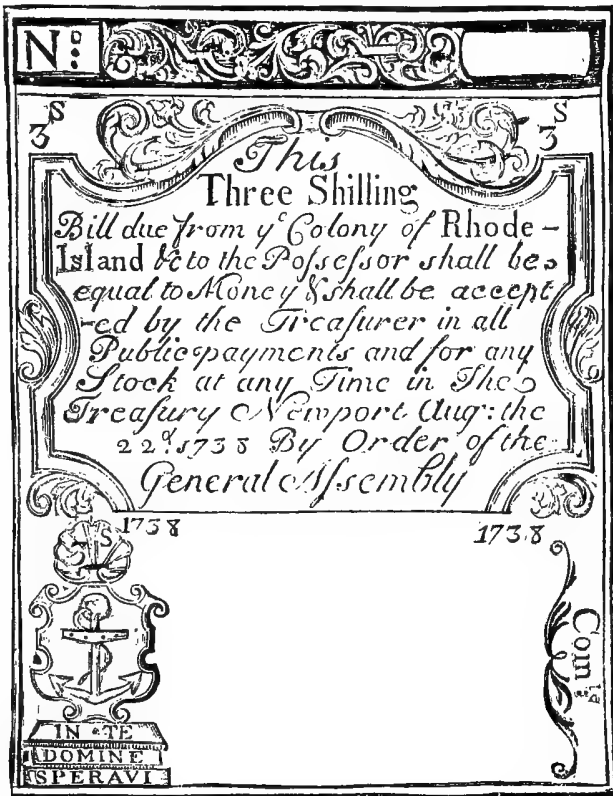 No:
3S 3S
This
Three Shilling
Bill due from ye Colony of Rhode-
Island &c to the Poſseſsor shall be
equal to Money & shall be accept
-ed by the Treaſurer in all
Public payments and for any
Stock at any Time in The
Treaſury Newport Aug: the
22d 1738 By Order of the
General Aſsembly
1738 1738
S
IN TE
DOMINE
SPERAVI
Comte